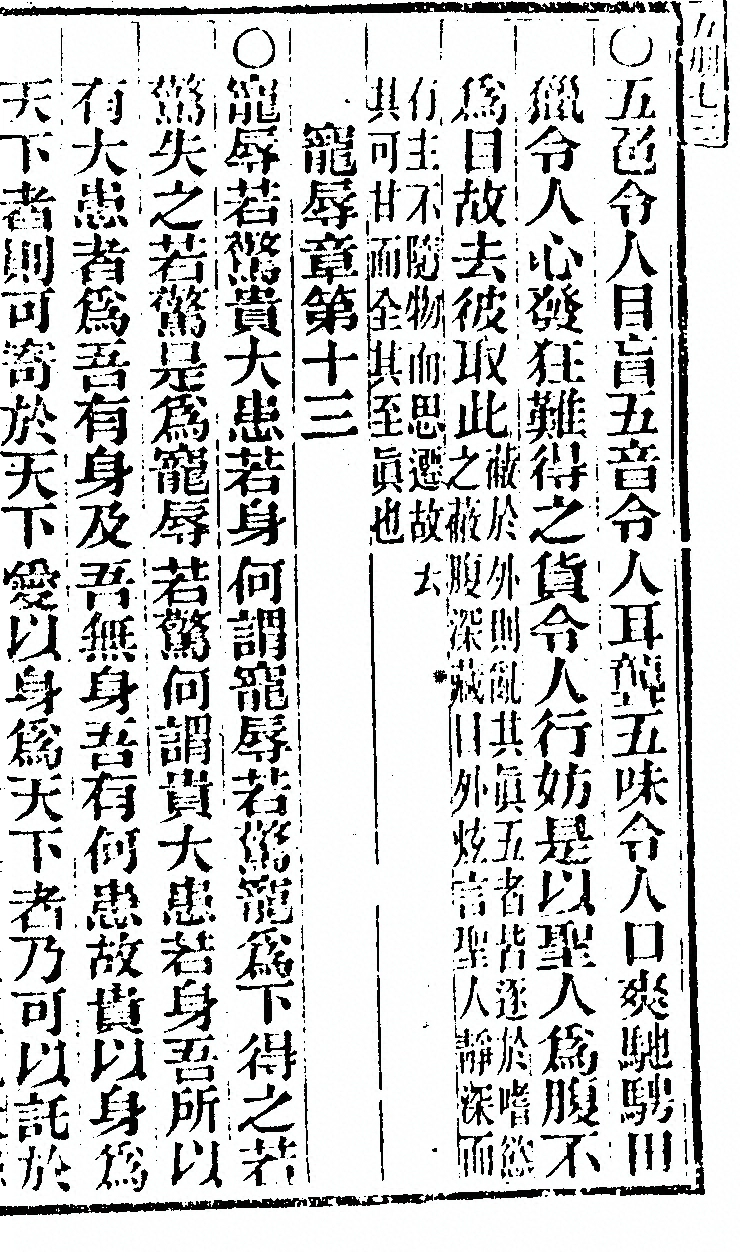 ○五色令人目盲五音令人耳聾五味令人口爽馳騁田
獵令人心發狂難得之貨令人行妨是以聖人爲腹不
爲目故去彼取此
蔽於外則亂其眞五者皆逐於嗜慾
之蔽腹深藏目外炫言聖人靜深而
有主不隨物而思遷故去
其可甘而全其至眞也
寵辱章第十三
○寵辱若驚貴大患若身何謂寵辱若驚寵爲下得之若
驚失之若驚是爲寵辱若驚何謂貴大患若身吾所以
有大患者爲吾有身及吾無身吾有何患故貴以身爲
天下者則可寄於天下愛以身爲天下者乃可以託於